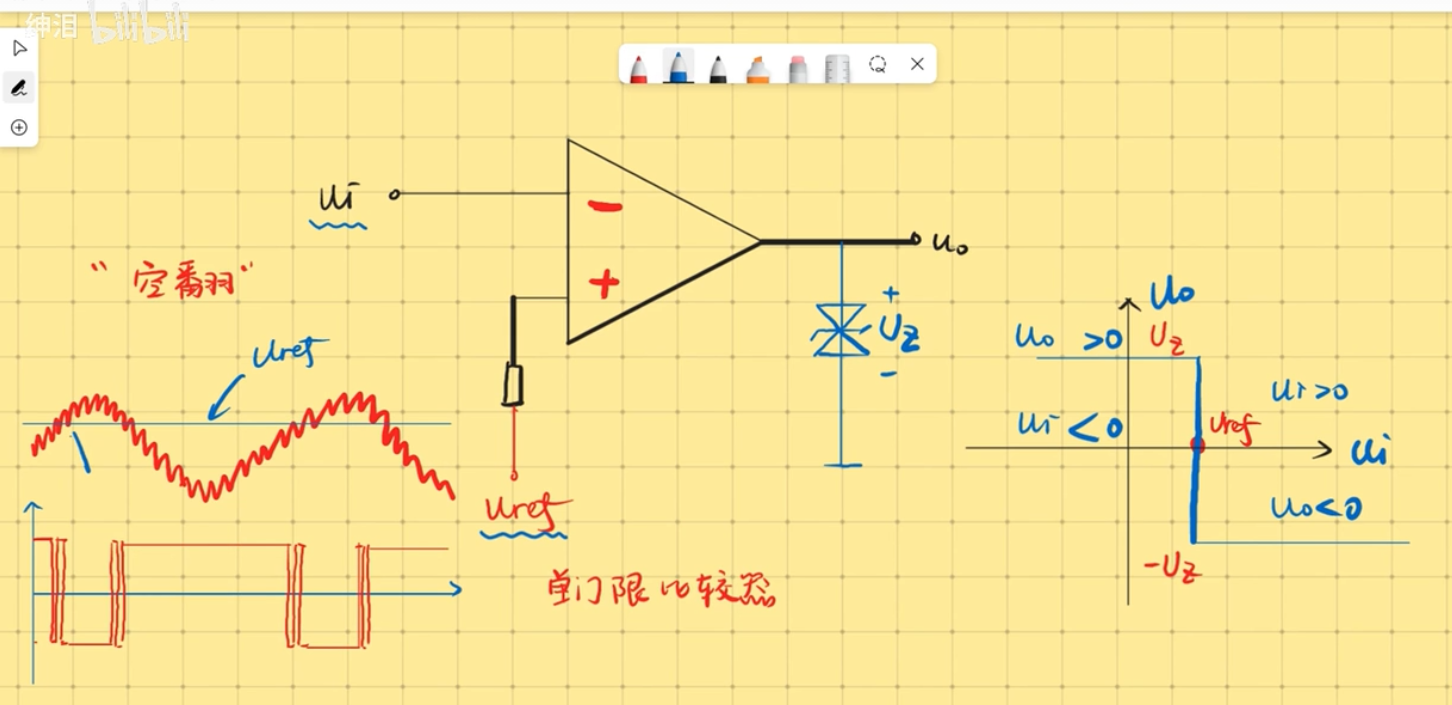 绅泪 bilibili
ui
uo
−
+
“空翻”
uref
+
Uz
−
uref
单门限比较器
uo
uo >0
Uz
ui>0
ui <0
uref
ui
uo<0
-Uz